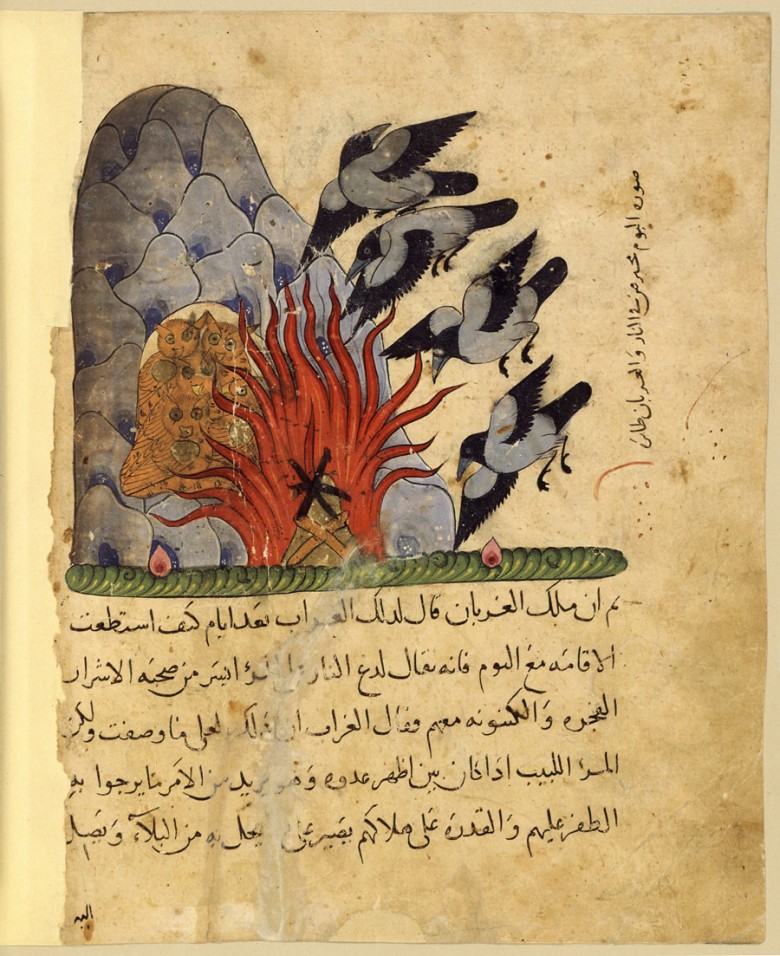 صوره البوم محترقه بالنار والغربان طائره
ثم ان ملك الغربان قال لذلك الغراب بعد ايام كيف استطعت
الاقامه مع البوم فانه يقال لدغ النار على المرء ايسر من صحبه الاشرار
الفجره والكينونه معهم وقال الغراب ان ذلك لعلى ما وصفت ولكن
المرء اللبيب اذا كان بين اظهر عدوه وهو يريد من الامر ما يرجوا به
الظفر عليهم والقدره على هلاكهم يصبر على ما يحل به من البلاء ويصل
اليه